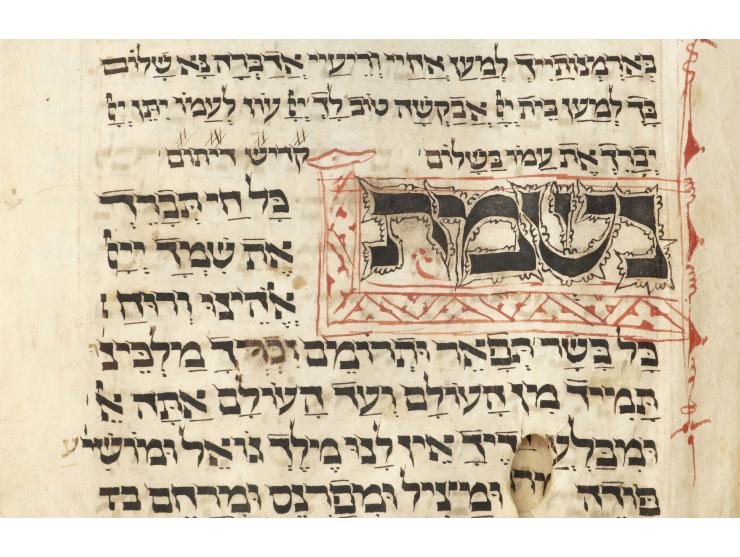 בארמנותייך למען אחיי ורעיי אדברה נא שלום
בך למען בית יי אבקשה טוב לך יי עוז לעמו יתן יי
יברך את עמו בשלום קדיש דיתום
נשמת
כל חי תברך
את שמך יי
אלהינו ורוח
כל בשר תפאר ותרומם מלכינו
תמיד מן העולם ועד העולם אתה א
אין לנו מלך גואל ומושיע
פודה ומציל ומפרנס ומרחם בכ